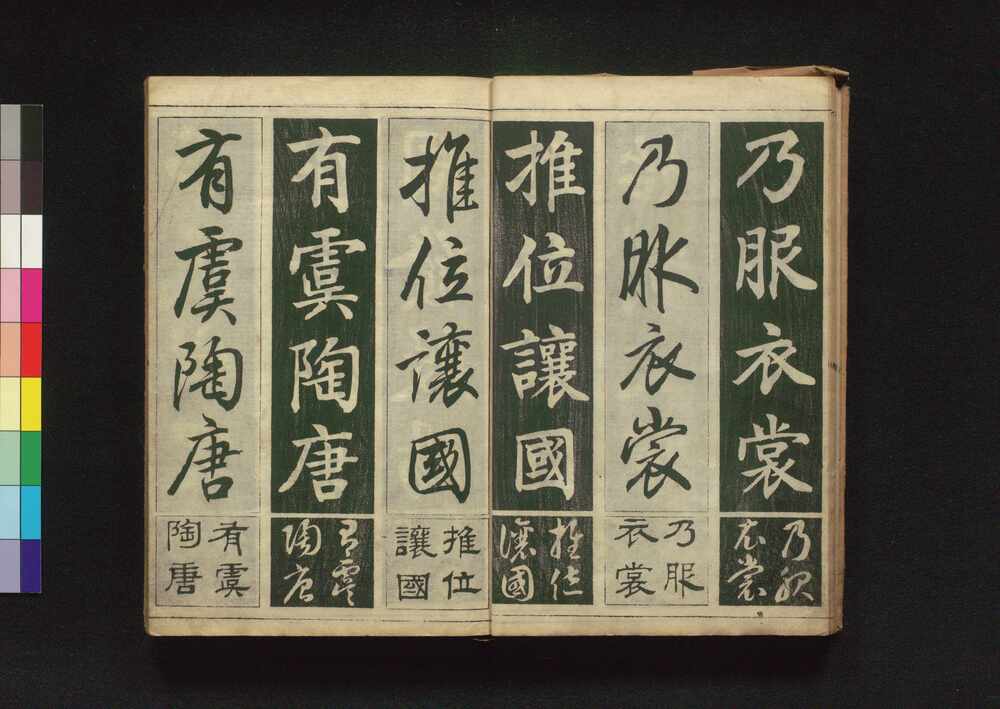 乃服衣裳
乃服
衣裳
乃服衣裳
乃服
衣裳
推位讓國
推位
讓國
推位讓國
推位
讓國
有虞陶唐
有虞
陶唐
有虞陶唐
有虞
陶唐